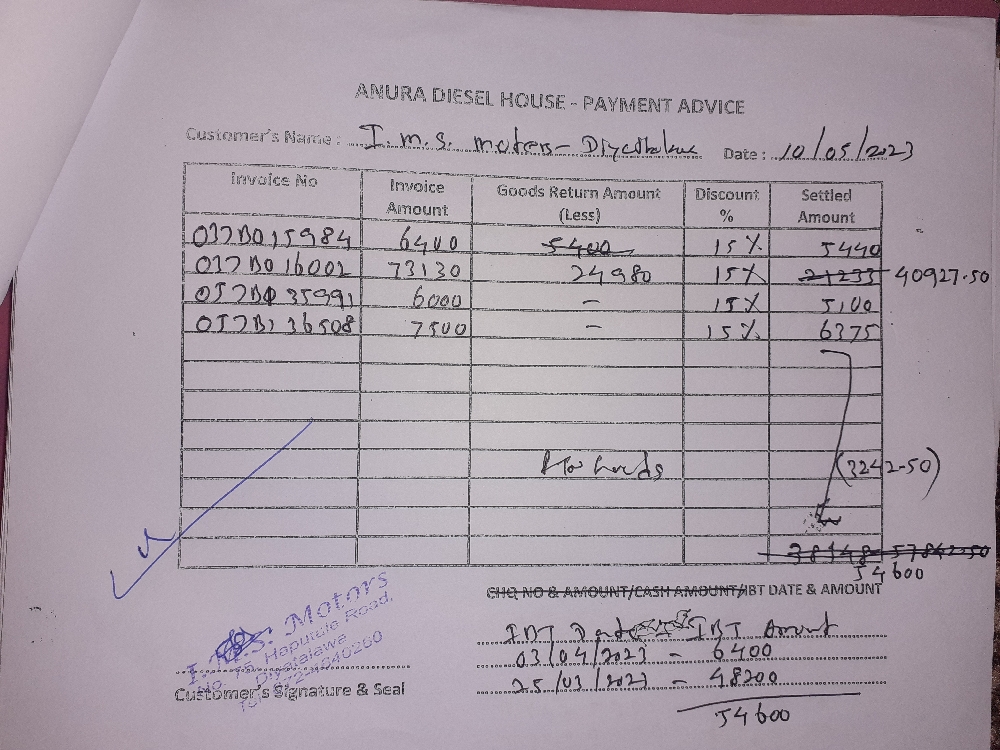 ANURA DIESEL HOUSE - PAYMENT ADVICE
Customer's Name : I.M.S. Motors - Diyathalawa Date : 10/05/2023
Invoice No Invoice Amount Goods Return Amount (Less) Discount % Settled Amount
017B015984 6400 5400 15% 5440
017B016002 73130 24980 15% 21233 40927-50
057B035991 6000 - 15% 5100
057B136508 7500 - 15% 6375
(3242-50)
38148 57842-50
54600
CHQ NO & AMOUNT/CASH AMOUNT/IBT DATE & AMOUNT
IBT Date IBT Amount
03/04/2023 - 6400
25/03/2023 - 48200
54600
I.M.S. Motors
No. 75, Haputale Road,
Diyatalawa
Customer's Signature & Seal